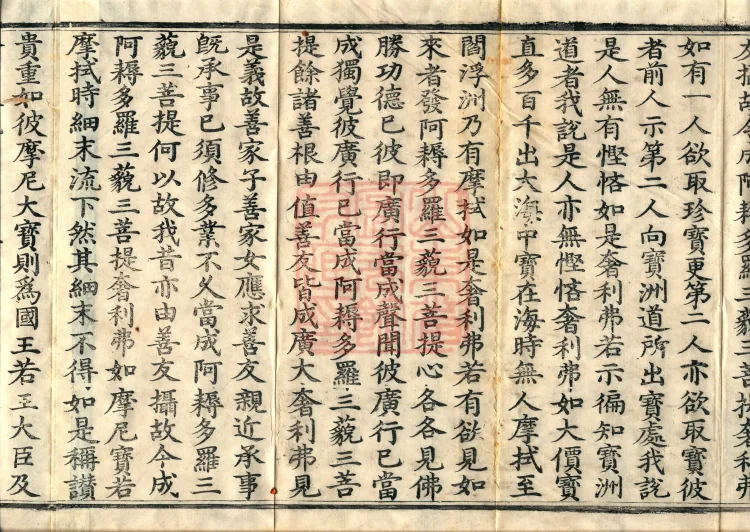 如有一人欲取珍寶更第二人亦欲取寶彼
者前人示第二人向寶洲道所出寶處我說
是人無有慳悋如是奢利弗若示徧知寶洲
道者我說是人亦無慳悋奢利弗如大價寶
直多百千出大海中寶在海時無人摩拭至
閻浮洲乃有摩拭如是奢利弗若有欲見如
來者發阿耨多羅三藐三菩提心各各見佛
勝功德已彼即廣行當成聲聞彼廣行已當
成獨覺彼廣行已當成阿耨多羅三藐三菩
提餘諸善根由值善友皆成廣大奢利弗見
是義故善家子善家女應求善友親近承事
既承事已須修多業不久當成阿耨多羅三
藐三菩提何以故我昔亦由善友攝故今成
阿耨多羅三藐三菩提奢利弗如摩尼寶若
摩拭時細末流下然其細末不得如是稱讚
貴重如彼摩尼大寶則爲國王若王大臣及